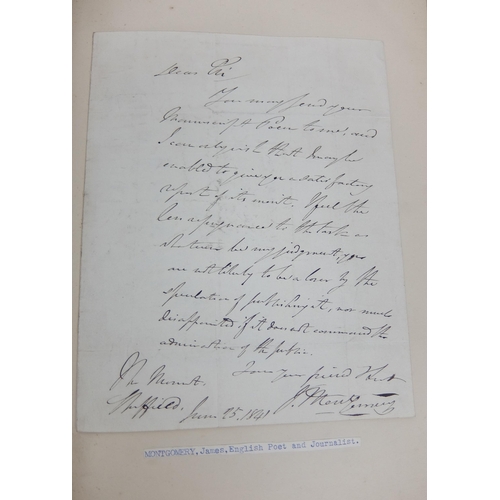 Dear Sir
You may send your
Manuscript Poem to me, and
I can only wish that I may be
enabled to give you a satisfactory
report of its merit. I feel the
less repugnance to the task as
whatever be my judgment, you
are not likely to be a loser by the
speculation of publishing it, nor much
disappointed if it does not command the
admiration of the public.
I am your friend &
The Mount.
Sheffield. June 25. 1841
J. Montgomery
MONTGOMERY,James,English Poet and Journalist.